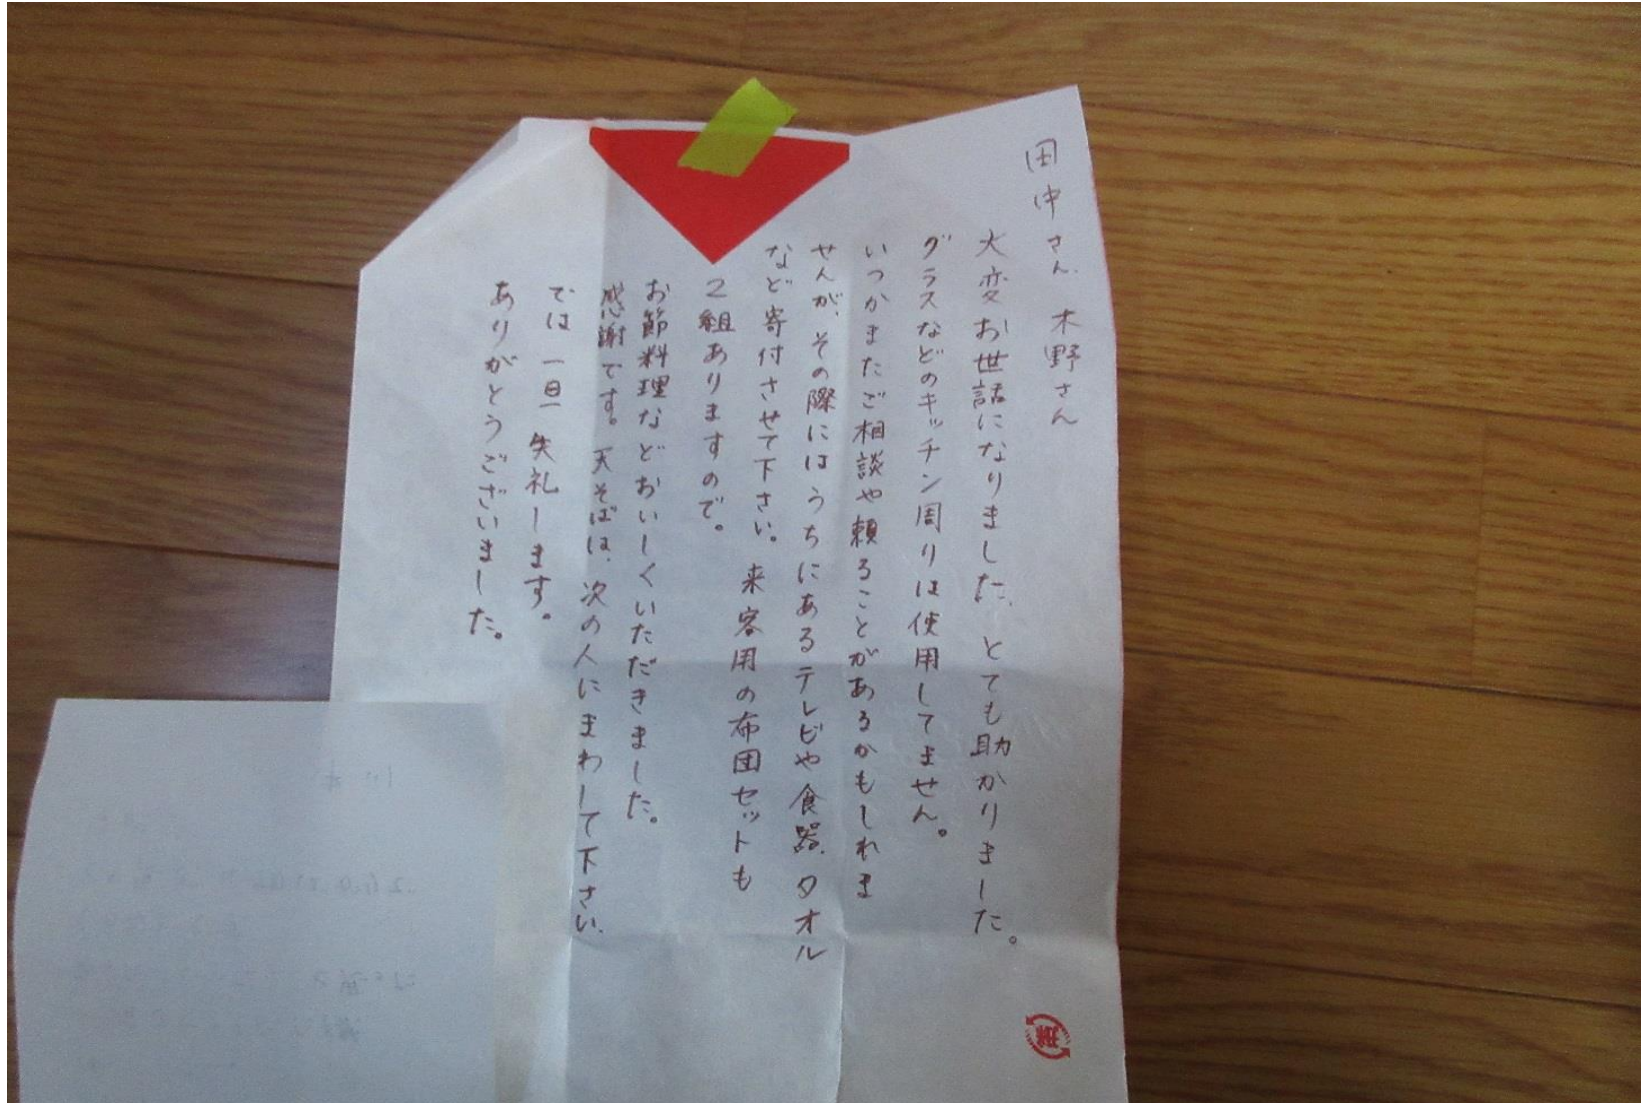 田中さん 木野さん
大変お世話になりました、とても助かりました。
グラスなどのキッチン周りは使用してません。
いつかまたご相談や頼ることがあるかもしれま
せんが、その際にはうちにあるテレビや食器、タオル
など寄付させて下さい。来客用の布団セットも
2組ありますので。
お節料理などおいしくいただきました。
感謝です。天そばは、次の人にまわして下さい、
では一旦失礼します。
ありがとうございました。